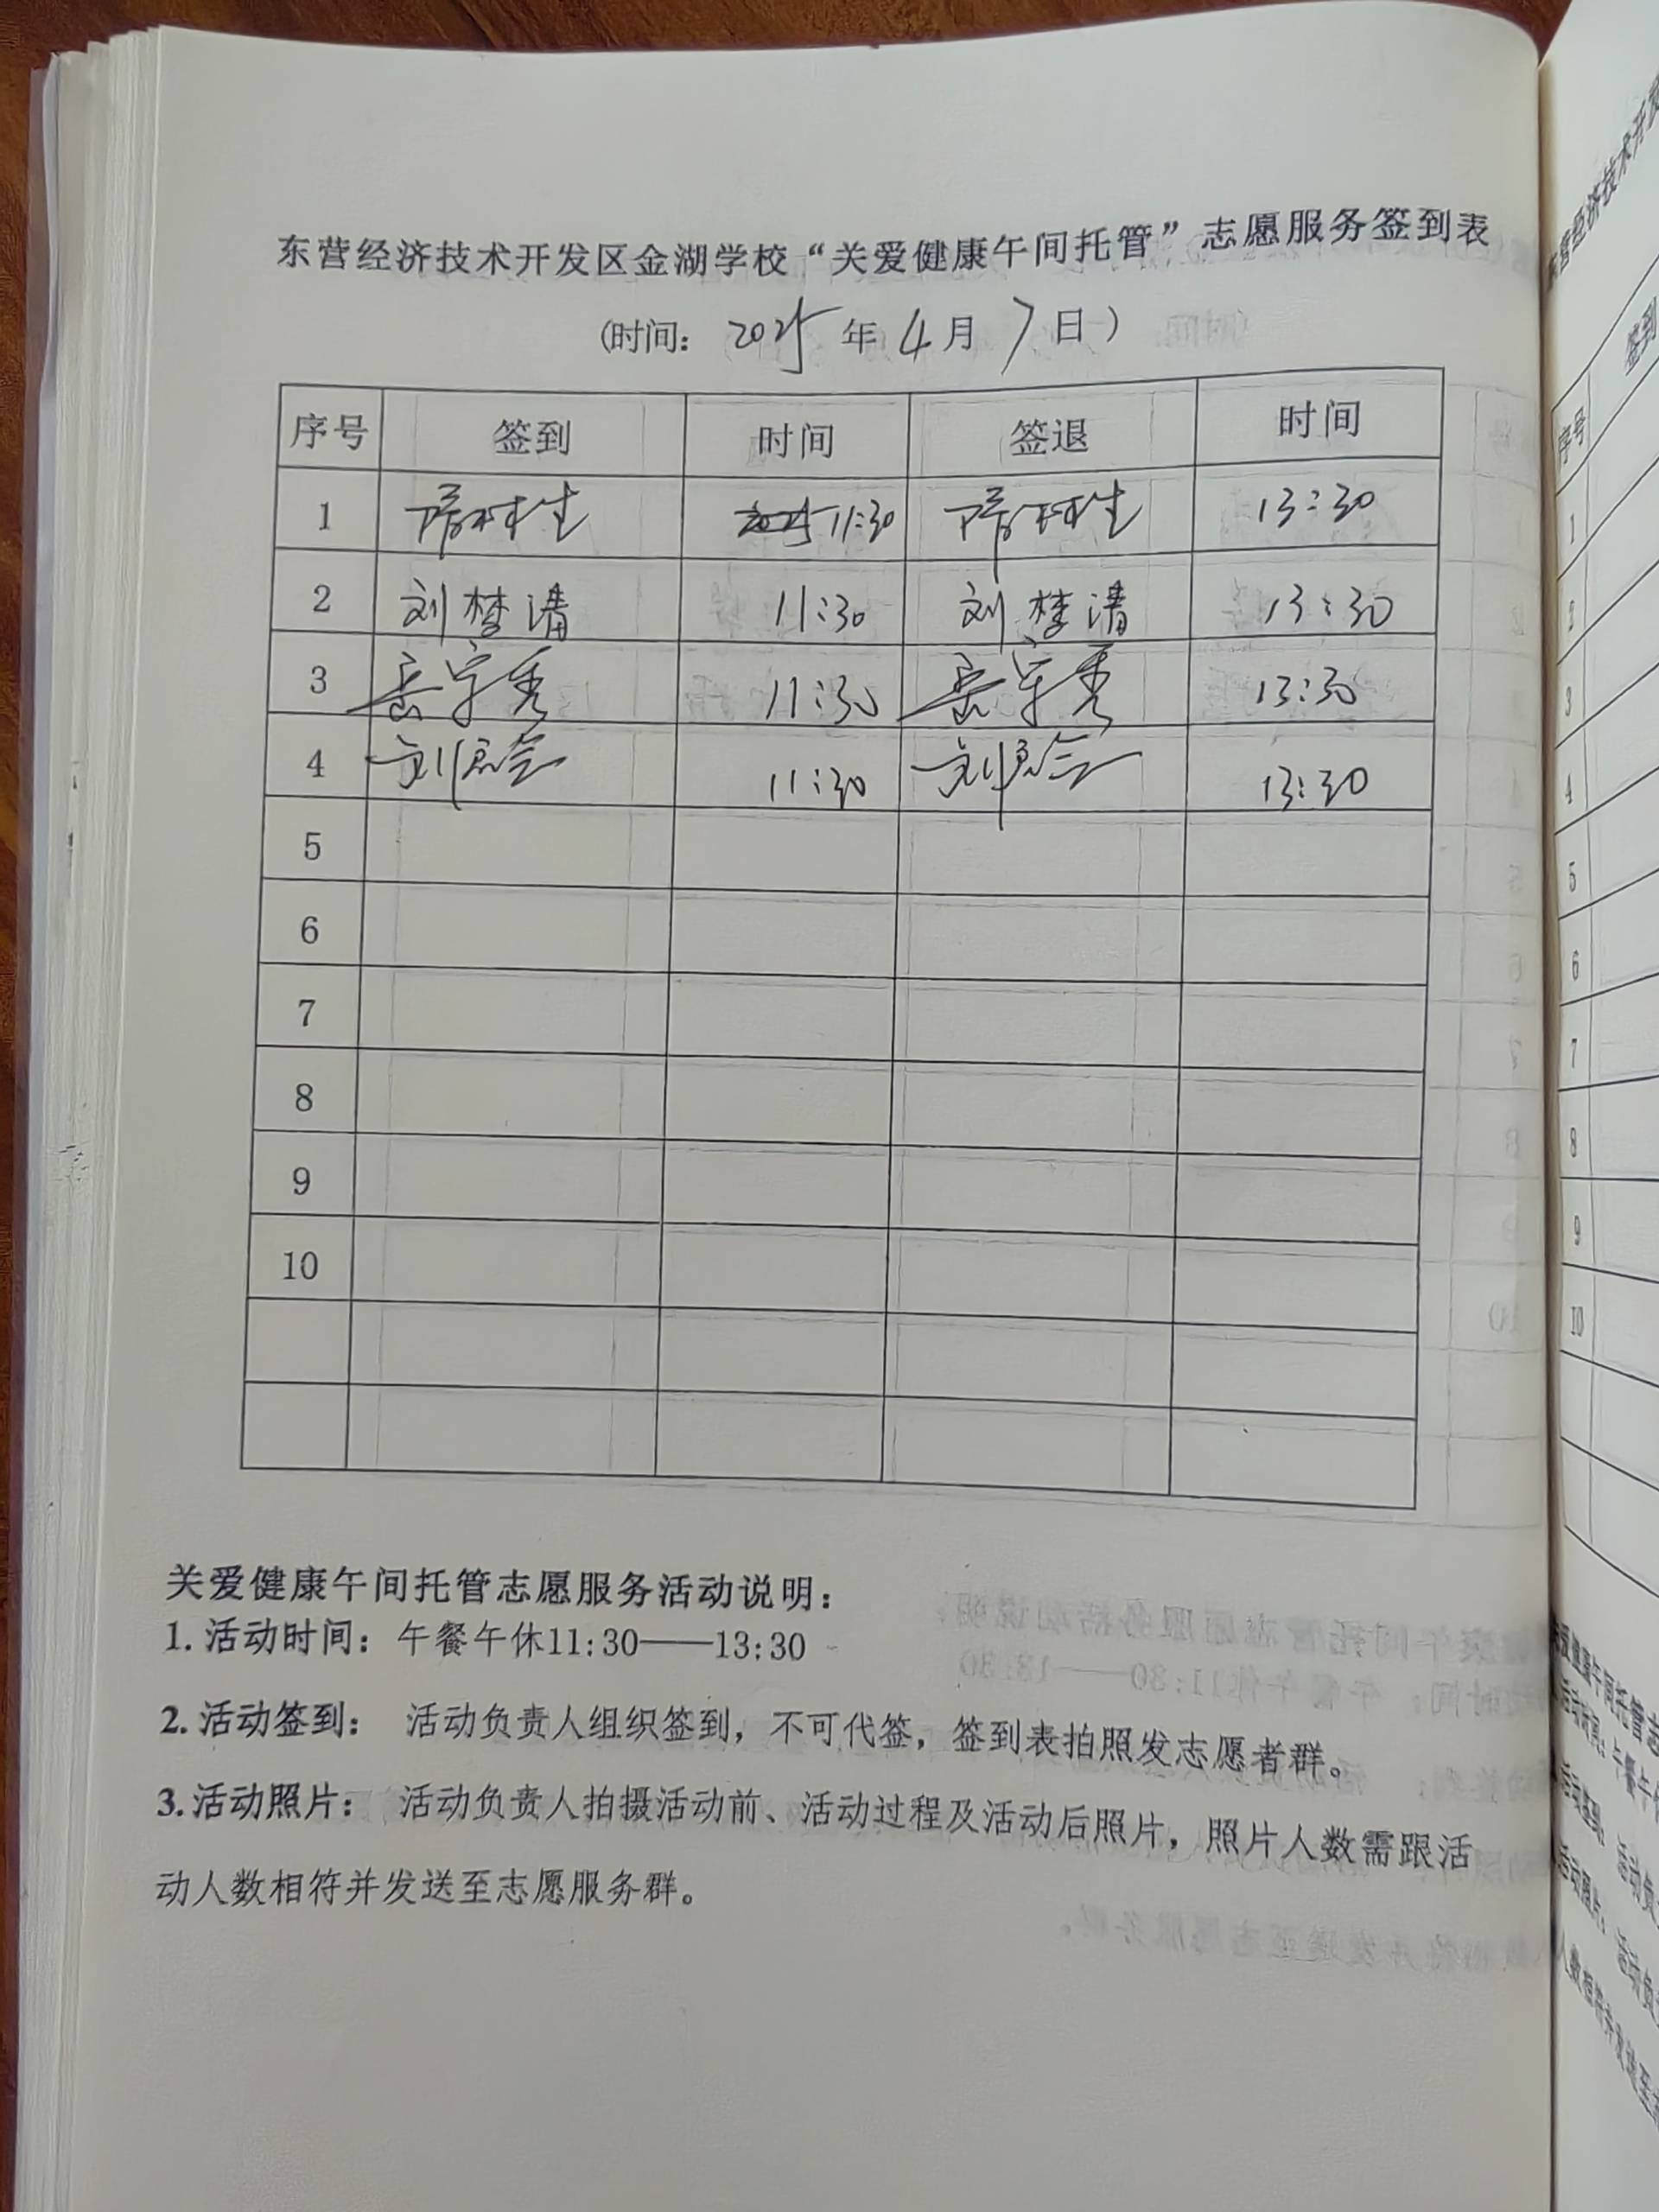 东营经济技术开发区金湖学校“关爱健康午间托管”志愿服务签到表
(时间： 2025 年 4 月 7 日 )
序号 签到 时间 签退 时间
1 11:30 13:30
2 刘梦清 11:30 刘梦清 13:30
3 岳宇秀 11:30 岳宇秀 13:30
4 11:30 13:30
5
6
7
8
9
10
关爱健康午间托管志愿服务活动说明：
1. 活动时间：午餐午休11:30——13:30
2. 活动签到： 活动负责人组织签到，不可代签，签到表拍照发志愿者群。
3. 活动照片： 活动负责人拍摄活动前、活动过程及活动后照片，照片人数需跟活
动人数相符并发送至志愿服务群。
序号 签到
1
2
3
4
5
6
7
8
9
10